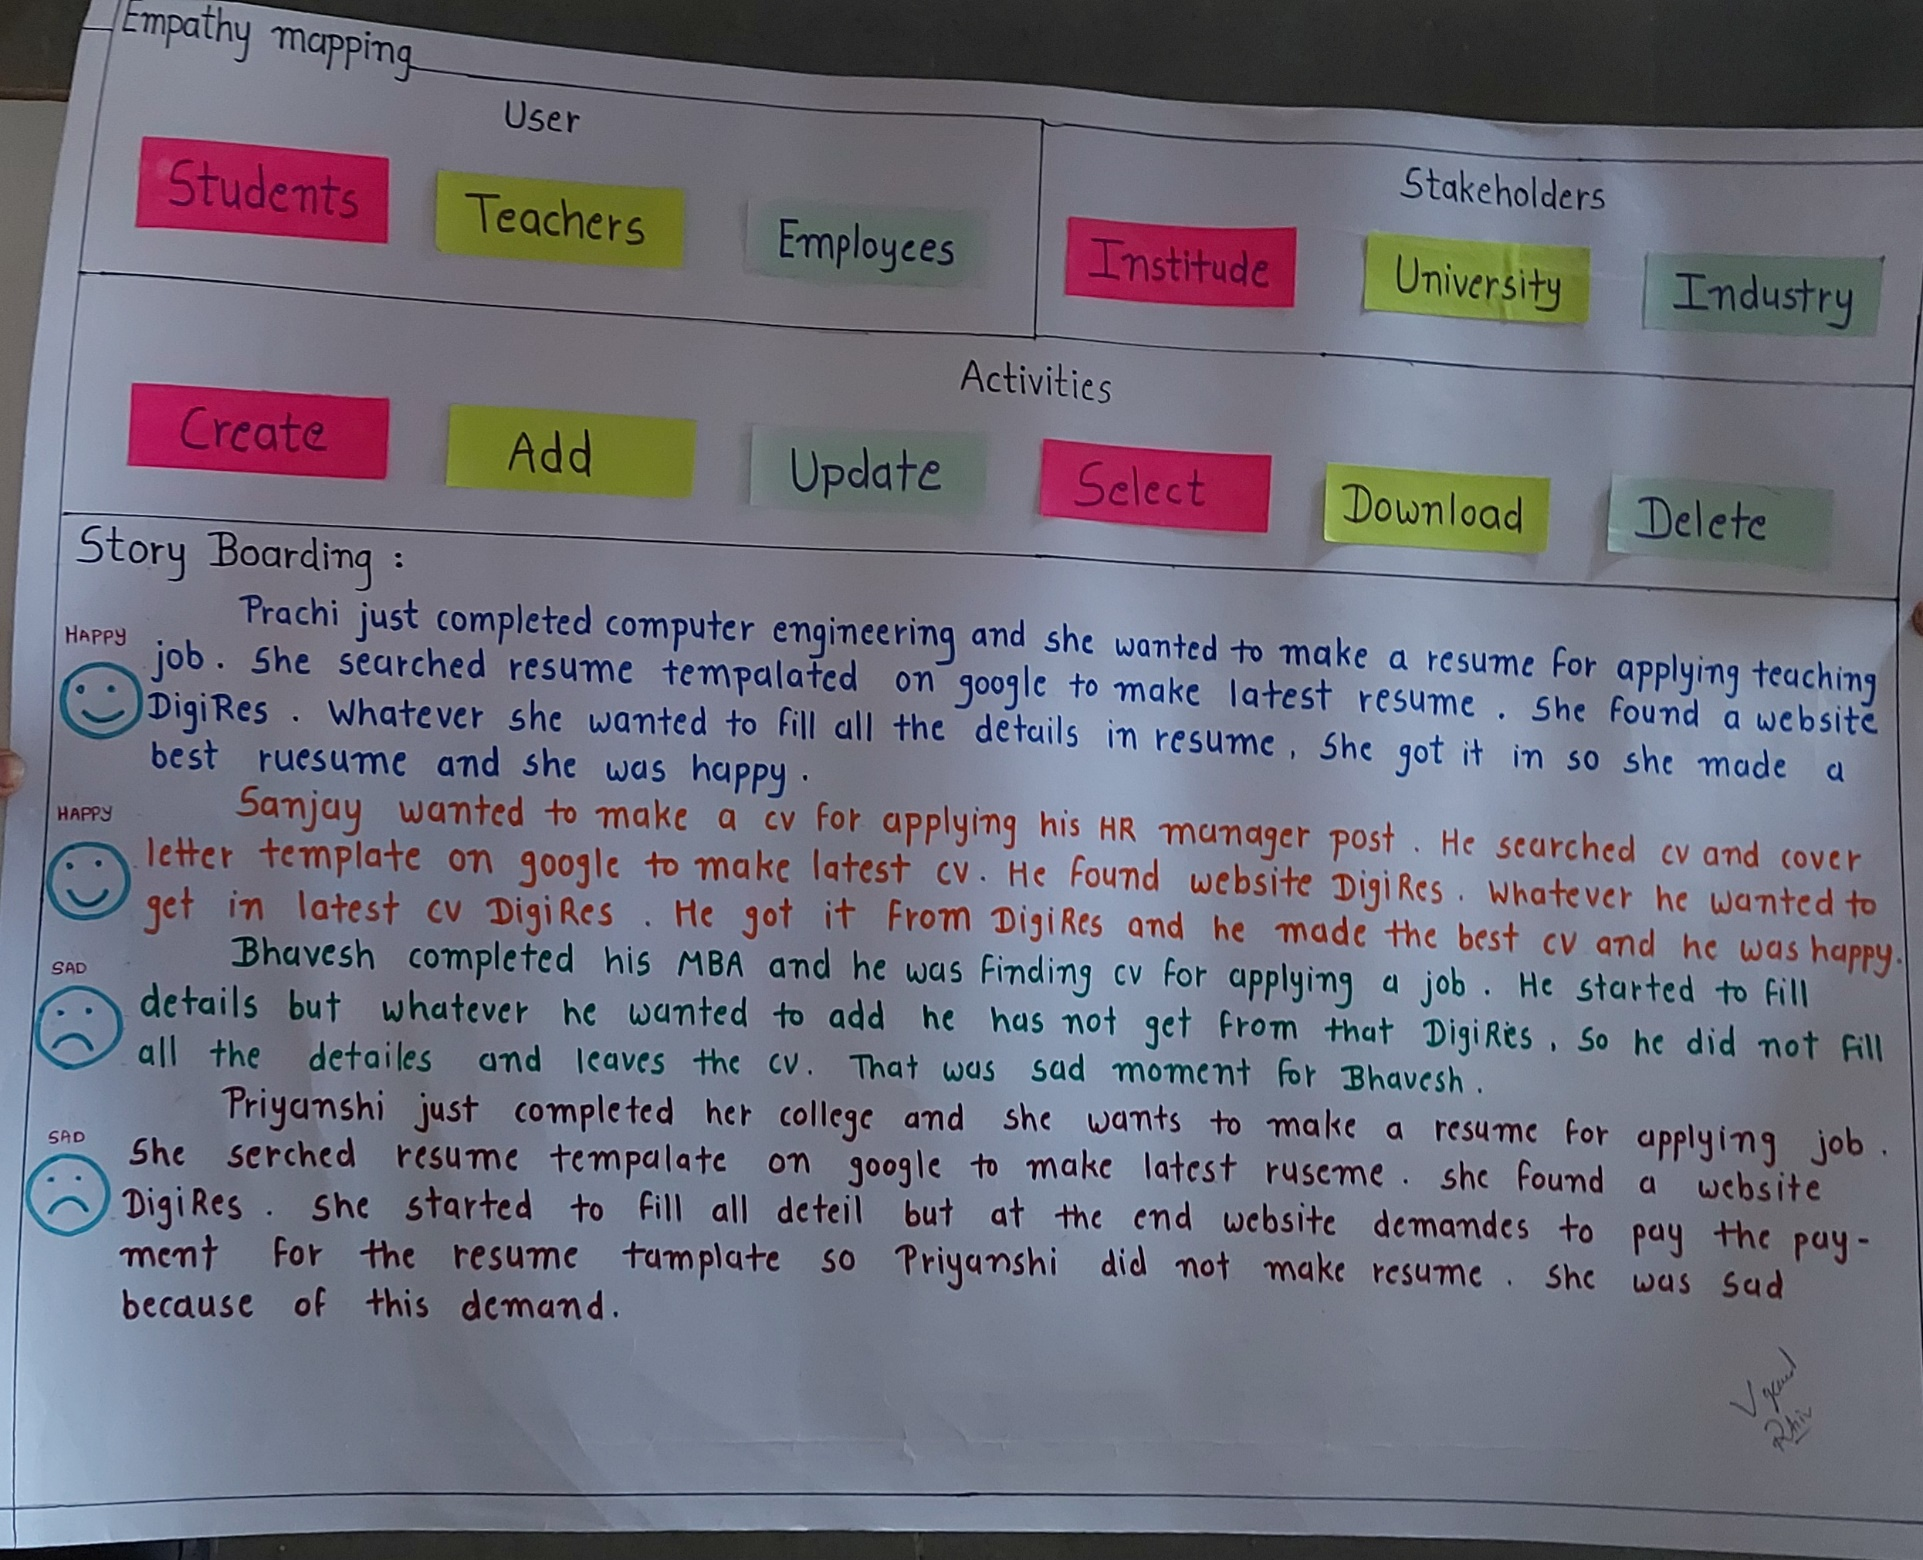 Empathy mapping
User
Students
Teachers
Employees
Stakeholders
Institude
University
Industry
Activities
Create
Add
Update
Select
Download
Delete
Story Boarding :
HAPPY
Prachi just completed computer engineering and she wanted to make a resume for applying teaching
job. She searched resume tempalated on google to make latest resume. She found a website
DigiRes. Whatever she wanted to fill all the details in resume, She got it in so she made a
best ruesume and she was happy.
HAPPY
Sanjay wanted to make a cv for applying his HR manager post. He searched cv and cover
letter template on google to make latest cv. He found website DigiRes. Whatever he wanted to
get in latest cv DigiRes. He got it from DigiRes and he made the best cv and he was happy.
SAD
Bhavesh completed his MBA and he was finding cv for applying a job. He started to fill
details but whatever he wanted to add he has not get from that DigiRes, So he did not fill
all the detailes and leaves the cv. That was sad moment for Bhavesh.
SAD
Priyanshi just completed her college and she wants to make a resume for applying job.
She serched resume tempalate on google to make latest ruseme. she found a website
DigiRes. She started to fill all deteil but at the end website demandes to pay the pay-
ment for the resume tamplate so Priyanshi did not make resume. She was sad
because of this demand.